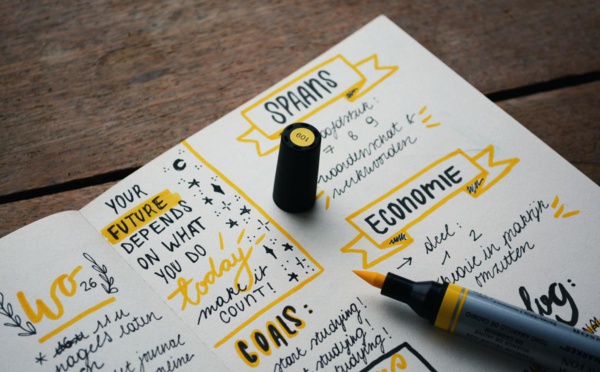 WO
26
nagels laten
journal
YOUR
FUTURE
DEPENDS
ON WHAT
YOU DO
today
make it
COUNT!
GOALS:
start studying!
studying!
SPAANS
7 8 9
woordenschat &
werkwoorden
ECONOMIE
→ deel:
1 2
theorie in praktijk
omzetten
log:
601